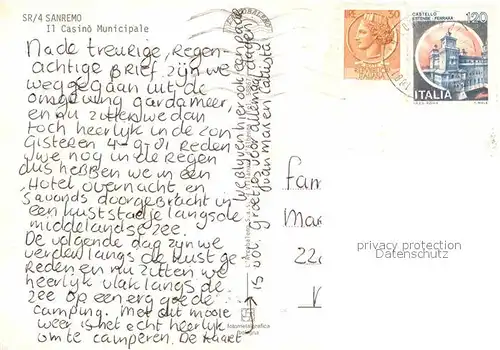 SR/4 SANREMO
Il Casinò Municipale
Na de treurige, regen-
achtige brief zijn we
weggegaan uit de
omgeving gardameer,
en nu zitten we dan
toch heerlijk in de zon
gisteren 4-9-81 reden
we nog in de regen
dus hebben we in een
Hotel overnacht, en
savonds doorgebracht in
een kuststadje langs de
middelandse zee.
De volgende dag zijn we
verder langs de kust ge-
reden en nu zitten we
heerlijk vlak langs de
zee op een erg goede
camping. Met dit mooie
weer is het echt heerlijk
om te kamperen. De kaart
is voor
we blijven hier ook een paar dagen
groetjes voor allemaal
CASTELLO
ESTENSE - FERRARA
120
ITALIA
50
Fam
Ma
22
privacy protection
Datenschutz
Bologna